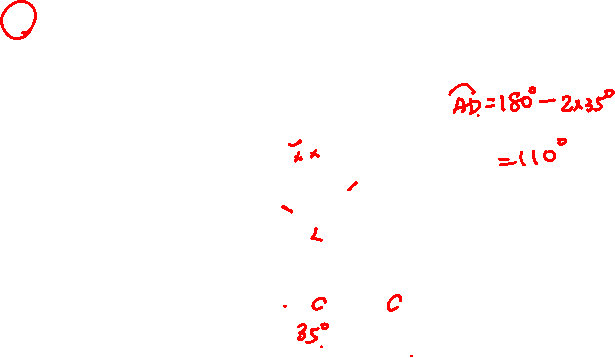 ⌒AD = 180° - 2×35°
= 110°
x x
L
C C
35°